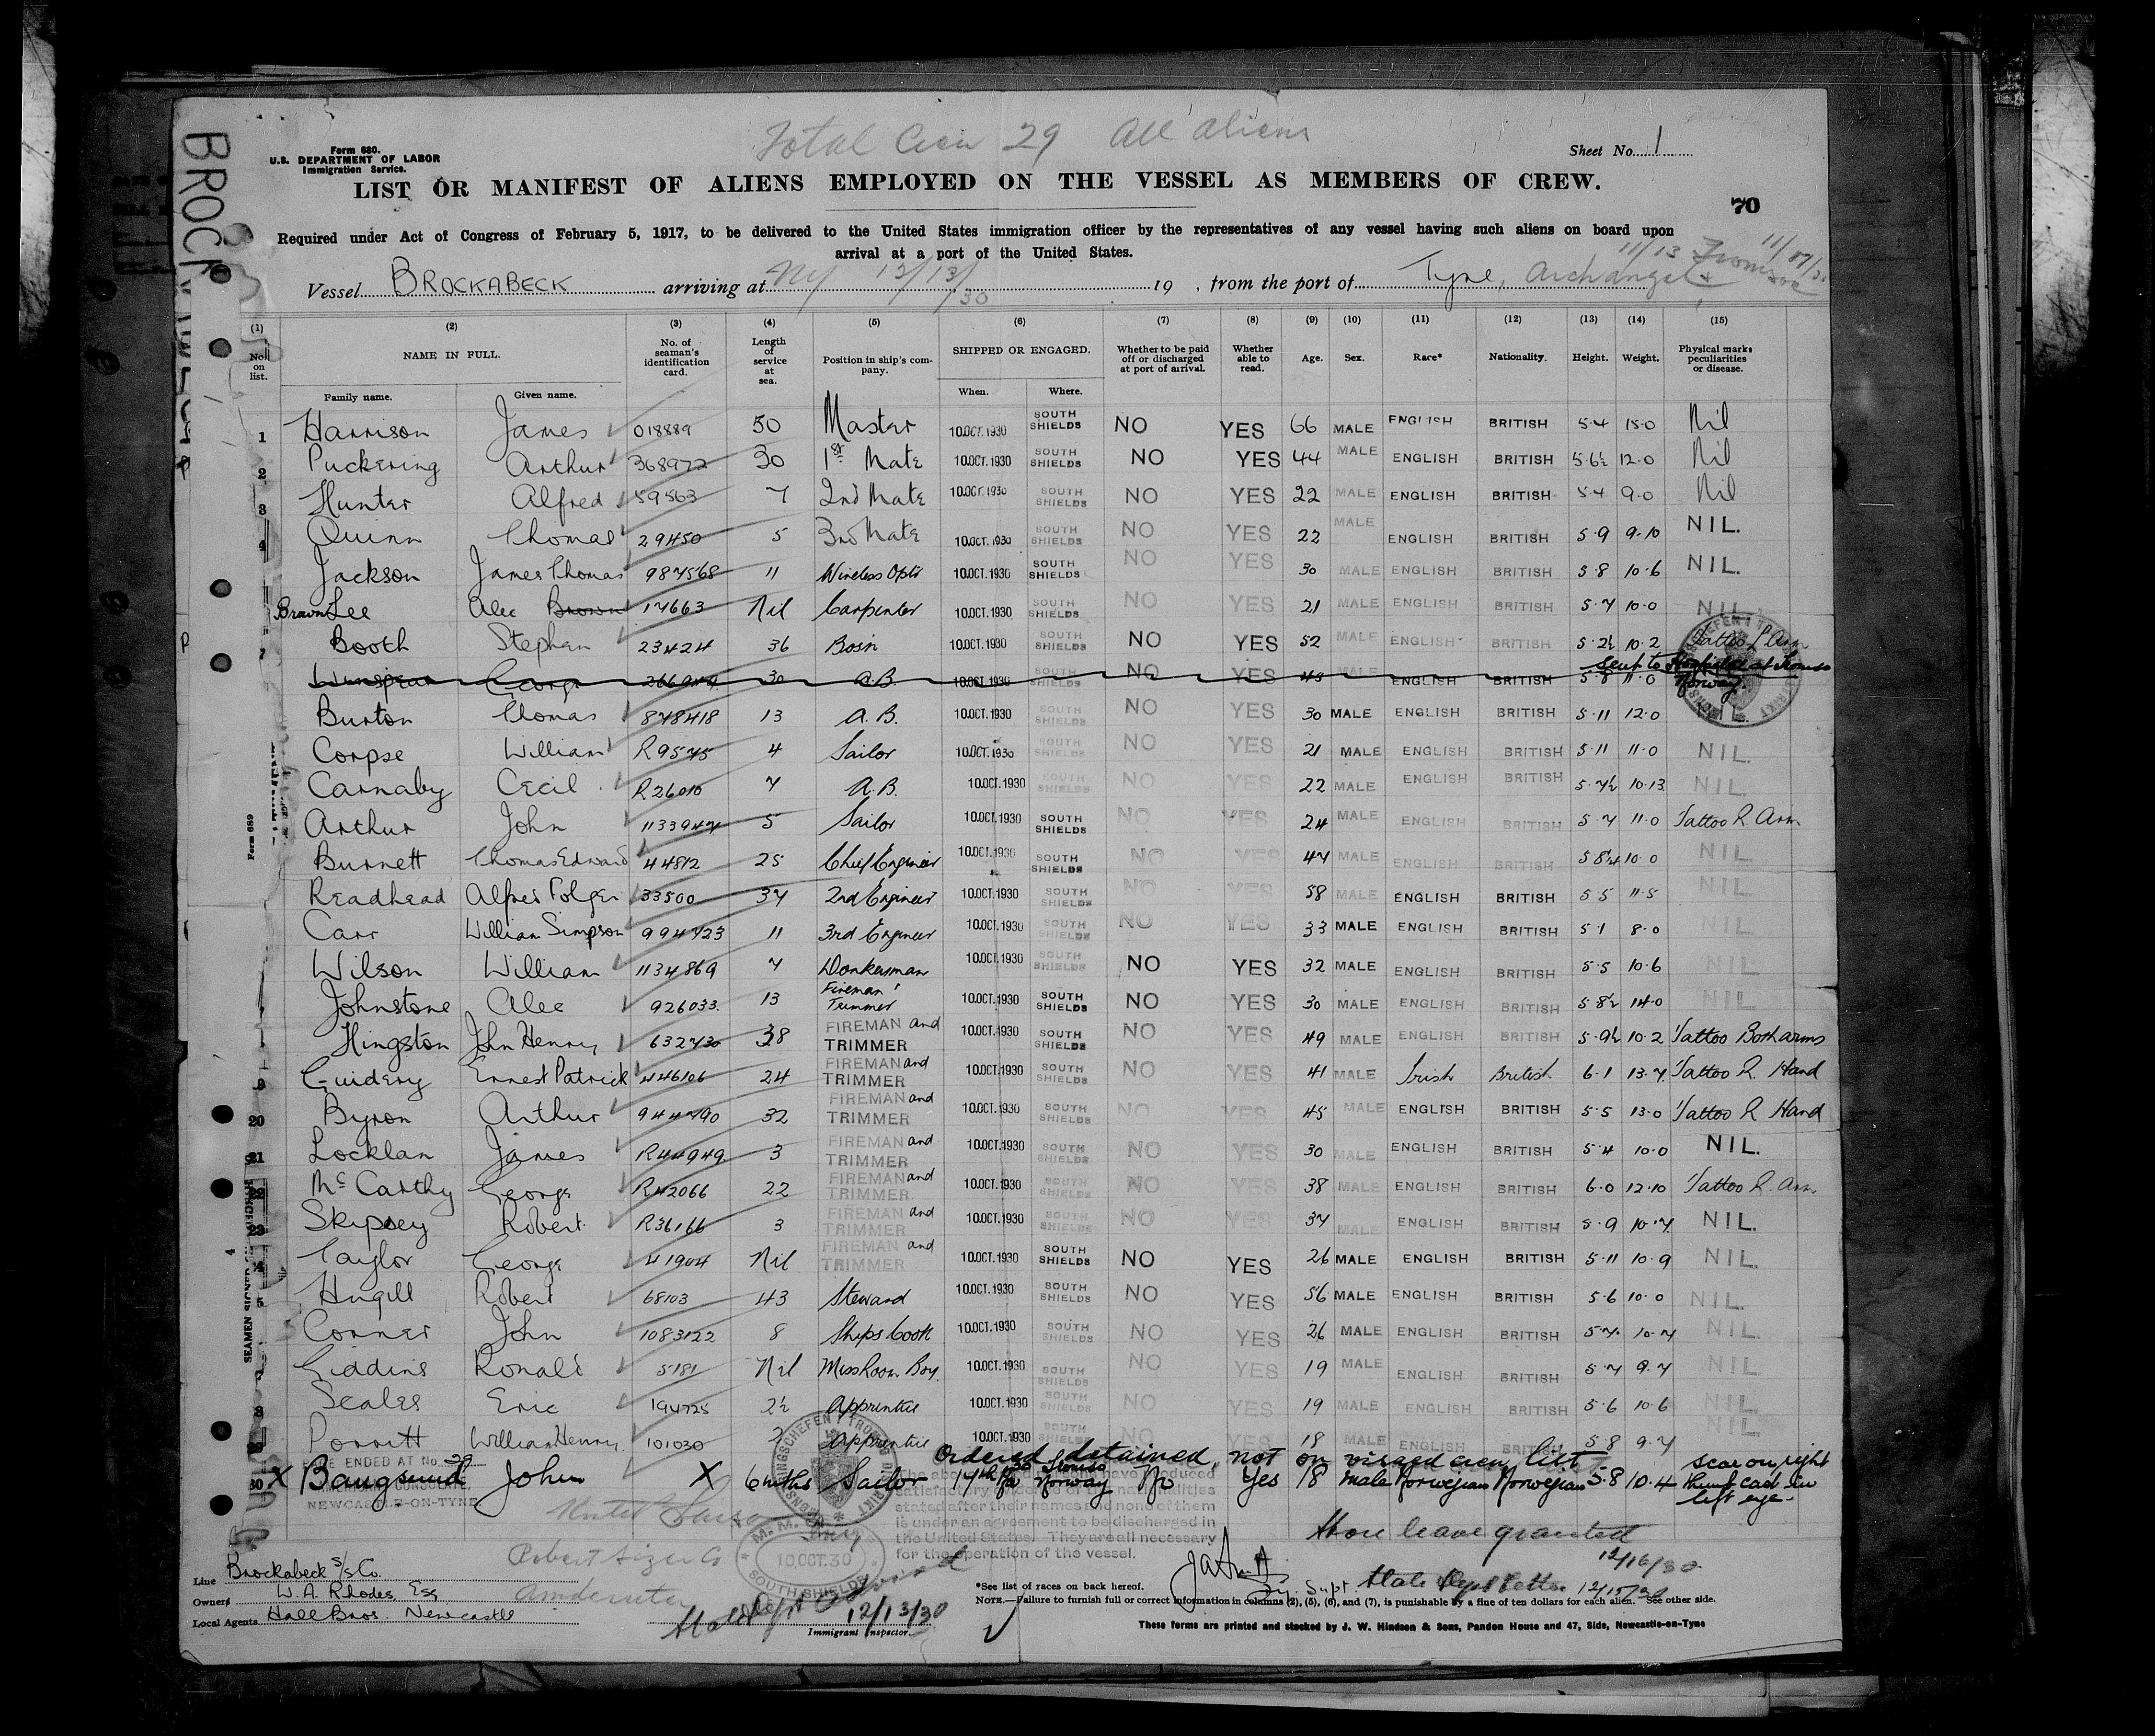 Total Crew 29 All aliens
Form 680.
U.S. DEPARTMENT OF LABOR
Immigration Service.
Sheet No. 1
LIST OR MANIFEST OF ALIENS EMPLOYED ON THE VESSEL AS MEMBERS OF CREW.
70
Required under Act of Congress of February 5, 1917, to be delivered to the United States immigration officer by the representatives of any vessel having such aliens on board upon
arrival at a port of the United States.
Vessel BROCKABECK arriving at NY 12/13/30 19 , from the port of Tyne, Archangel
(1) (2) (3) (4) (5) (6) (7) (8) (9) (10) (11) (12) (13) (14) (15)
No. on list. NAME IN FULL. No. of seaman's identification card. Length of service at sea. Position in ship's company. SHIPPED OR ENGAGED. Whether to be paid off or discharged at port of arrival. Whether able to read. Age. Sex. Race* Nationality. Height. Weight. Physical marks peculiarities or disease.
Family name. Given name. When. Where.
1 Harrison James 018889 50 Master 10.OCT.1930 SOUTH SHIELDS NO YES 66 MALE ENGLISH BRITISH 5.4 15.0 Nil
2 Puckering Arthur 368972 30 1st Mate 10.OCT.1930 SOUTH SHIELDS NO YES 44 MALE ENGLISH BRITISH 5.6½ 12.0 Nil
3 Hunter Alfred 59563 7 2nd Mate 10.OCT.1930 SOUTH SHIELDS NO YES 22 MALE ENGLISH BRITISH 5.4 9.0 Nil
4 Quinn Thomas 29450 5 3rd Mate 10.OCT.1930 SOUTH SHIELDS NO YES 22 MALE ENGLISH BRITISH 5.9 9.10 NIL.
Jackson James Thomas 987568 11 Wireless Optr 10.OCT.1930 SOUTH SHIELDS NO YES 30 MALE ENGLISH BRITISH 5.8 10.6 NIL.
Brown Lee Alec Brown 17663 Nil Carpenter 10.OCT.1930 SOUTH SHIELDS NO YES 21 MALE ENGLISH BRITISH 5.7 10.0 NIL
7 Booth Stephen 23424 36 Bosn 10.OCT.1930 SOUTH SHIELDS NO YES 52 MALE ENGLISH BRITISH 5.2½ 10.2 Tattoo L Arm
George 30 A.B. 10.OCT.1930 SOUTH NO YES MALE ENGLISH BRITISH 5.8 11.0 Sent to Hospital at Tromso Norway.
Burton Thomas 878418 13 A.B. 10.OCT.1930 SOUTH SHIELDS NO YES 30 MALE ENGLISH BRITISH 5.11 12.0 NIL.
Corpse William R9575 4 Sailor 10.OCT.1930 SOUTH SHIELDS NO YES 21 MALE ENGLISH BRITISH 5.11 11.0 NIL.
Carnaby Cecil R26010 7 A.B. 10.OCT.1930 SOUTH SHIELDS NO YES 22 MALE ENGLISH BRITISH 5.7½ 10.13 NIL.
Arthur John 1133947 5 Sailor 10.OCT.1930 SOUTH SHIELDS NO YES 24 MALE ENGLISH BRITISH 5.7 11.0 Tattoo R Arm
Burnett Thomas Edward 44812 25 Chief Engineer 10.OCT.1930 SOUTH SHIELDS NO YES 47 MALE ENGLISH BRITISH 5 8¾ 10.0 NIL.
Readhead Alfred 33500 37 2nd Engineer 10.OCT.1930 SOUTH SHIELDS NO YES 58 MALE ENGLISH BRITISH 5.5 11.5 NIL.
Carr William Simpson 994723 11 3rd Engineer 10.OCT.1930 SOUTH SHIELDS NO YES 33 MALE ENGLISH BRITISH 5.1 8.0 NIL
Wilson William 1134869 7 Donkeyman 10.OCT.1930 SOUTH SHIELDS NO YES 32 MALE ENGLISH BRITISH 5.5 10.6 NIL
Johnstone Alec 926033 13 Fireman Trimmer 10.OCT.1930 SOUTH SHIELDS NO YES 30 MALE ENGLISH BRITISH 5.8½ 14.0 NIL
Hingston John Henry 632730 38 FIREMAN and TRIMMER 10.OCT.1930 SOUTH SHIELDS NO YES 49 MALE ENGLISH BRITISH 5.9½ 10.2 Tattoo Both arms
9 Guidery Ernest Patrick 446106 24 FIREMAN and TRIMMER 10.OCT.1930 SOUTH SHIELDS NO YES 41 MALE Irish British 6.1 13.7 Tattoo R. Hand
20 Byron Arthur 944790 32 FIREMAN and TRIMMER 10.OCT.1930 SOUTH SHIELDS NO YES 45 MALE ENGLISH BRITISH 5.5 13.0 Tattoo R Hand
21 Locklan James R44949 3 FIREMAN and TRIMMER 10.OCT.1930 SOUTH SHIELDS NO YES 30 MALE ENGLISH BRITISH 5.4 10.0 NIL.
22 McCarthy George R42066 22 FIREMAN and TRIMMER. 10.OCT.1930 SOUTH SHIELDS NO YES 38 MALE ENGLISH BRITISH 6.0 12.10 Tattoo R. Arm.
23 Skipsey Robert R36166 3 FIREMAN and TRIMMER 10.OCT.1930 SOUTH SHIELDS NO YES 37 MALE ENGLISH BRITISH 5.9 10.7 NIL.
4 Taylor George 41904 Nil FIREMAN and TRIMMER 10.OCT.1930 SOUTH SHIELDS NO YES 26 MALE ENGLISH BRITISH 5.11 10.9 NIL.
5 Hugill Robert 68103 43 Steward 10.OCT.1930 SOUTH SHIELDS NO YES 56 MALE ENGLISH BRITISH 5.6 10.0 NIL.
Conner John 1083122 8 Ships Cook 10.OCT.1930 SOUTH SHIELDS NO YES 26 MALE ENGLISH BRITISH 5.7 10.7 NIL.
Giddins Ronald 5181 Nil Mess Room Boy. 10.OCT.1930 SOUTH SHIELDS NO YES 19 MALE ENGLISH BRITISH 5.7 9.7 NIL
8 Scales Eric 194725 2½ Apprentice 10.OCT.1930 SOUTH SHIELDS NO YES 19 MALE ENGLISH BRITISH 5.6 10.6 NIL
29 Porritt William Henry. 101030 2 Apprentice 10.OCT.1930 SOUTH SHIELDS NO YES 18 MALE ENGLISH BRITISH 5.8 9.7 NIL
Ordered detained, not on visaed crew list
30 X Baugsund John X 6 mths Sailor 17th Tromso Norway No Yes 18 male Norwegian Norwegian 5.8 10.4 scar on right thumb cast in left eye.
ENDED AT No. 29
CONSULATE,
NEWCASTLE-ON-TYNE
satisfactory
stated after their names and none of them
is under an agreement to be discharged in
the United States. They are all necessary
for the operation of the vessel.
Shore leave granted
12/16/30
M.M.O.
10 OCT.30
SOUTH SHIELDS
Line Brockabeck S/S Co.
Owners W. A. Rhodes, Esq
Local Agents Hall Bros. Newcastle
12/13/30
Immigrant Inspector.
*See list of races on back hereof.
State Dept letter 12/15/30
NOTE.—Failure to furnish full or correct information in columns (2), (5), (6), and (7), is punishable by a fine of ten dollars for each alien. See other side.
These forms are printed and stocked by J. W. Hindson & Sons, Pandon House and 47, Side, Newcastle-on-Tyne
Form 689